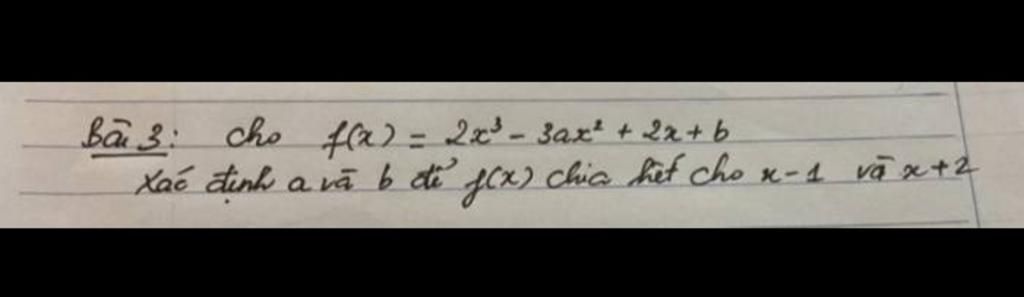 Bài 3: Cho f(x) = 2x³ - 3ax² + 2x + b
Xác định a và b để f(x) chia hết cho x-1 và x+2